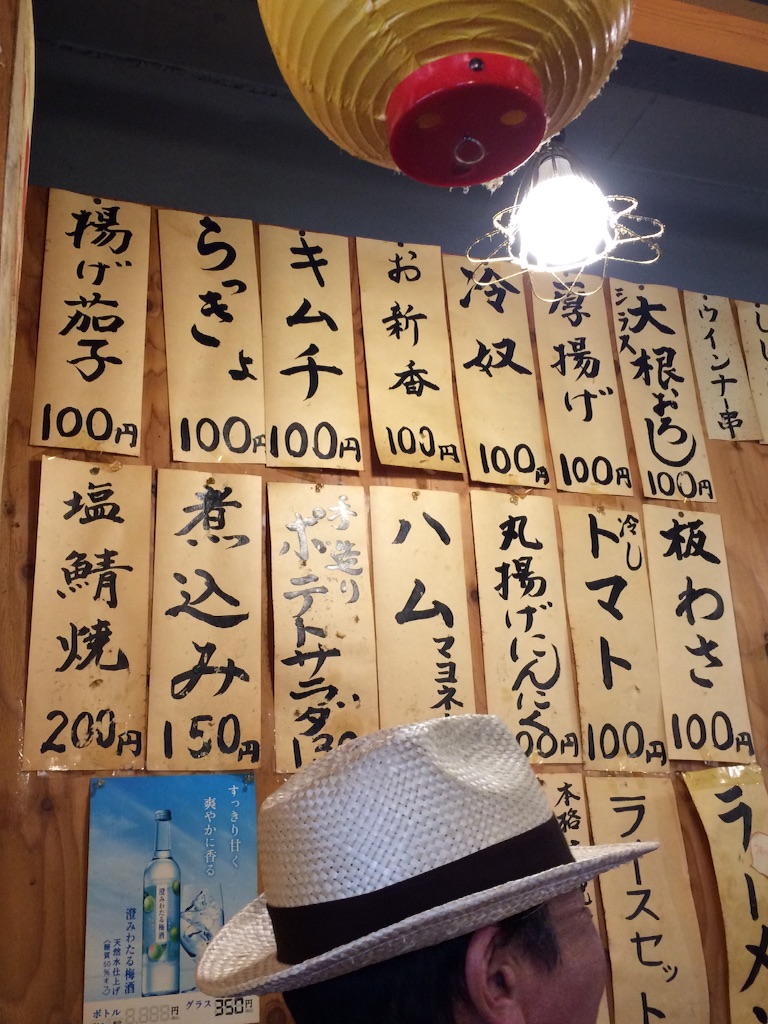 揚げ茄子
100円
らっきょ
100円
キムチ
100円
お新香
100円
冷奴
100円
厚揚げ
100円
シラス
大根おろし
100円
ウインナー串
塩鯖焼
200円
煮込み
150円
手造り
ポテトサラダ
ハム
マヨネ
丸揚げにんにく
00円
冷し
トマト
100円
板わさ
100円
すっきり甘く
爽やかに香る
澄みわたる梅酒
澄みわたる梅酒
天然水仕上げ
〈糖質50%オフ〉
ボトル
グラス 350円
本格
ラースセット
ラーメン